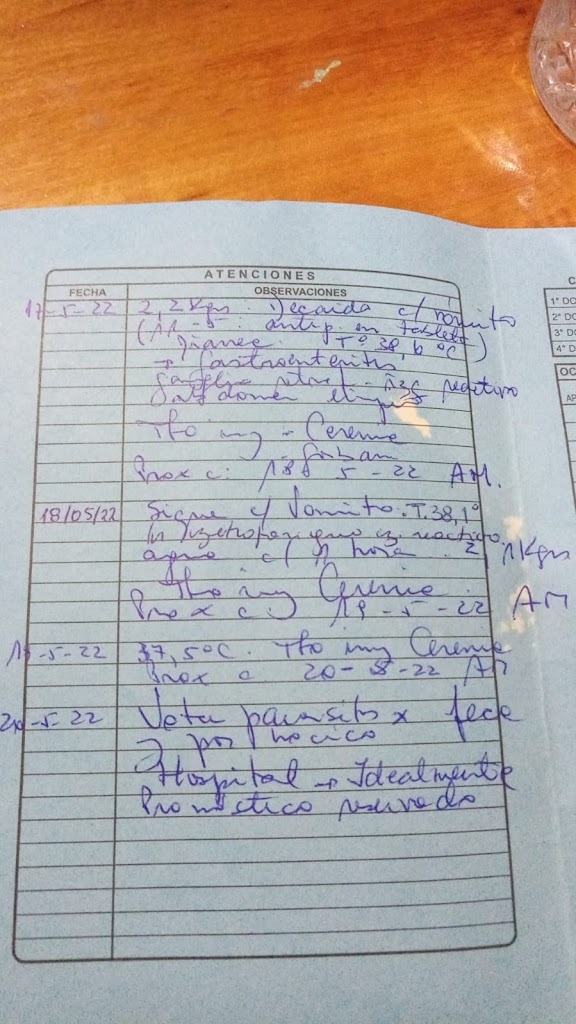 ATENCIONES
FECHA OBSERVACIONES
17-5-22 2,2 Kgs. Decaida c/ vomito
(11-5: antip. en tableta)
Tº 38,6 ºC
→ Gastroenteritis
reactivo
Tto iny - Cerenia
Prox c: 18 5-22 AM.
18/05/22 Sigue c/ Vomito. T. 38,1º
reactivo
agua c/ hora. 2,1 Kgs
Tto iny Cerenia
Prox c: 19-5-22 AM
19-5-22 37,5ºC. Tto iny Cerenia
Prox c 20-5-22 AM
20-5-22 Vota parasitos x feca
y por hocico
Hospital → Idealmente
Pronostico reservado
C
1° DO
2° DO
3° DO
4° D
OC
AP